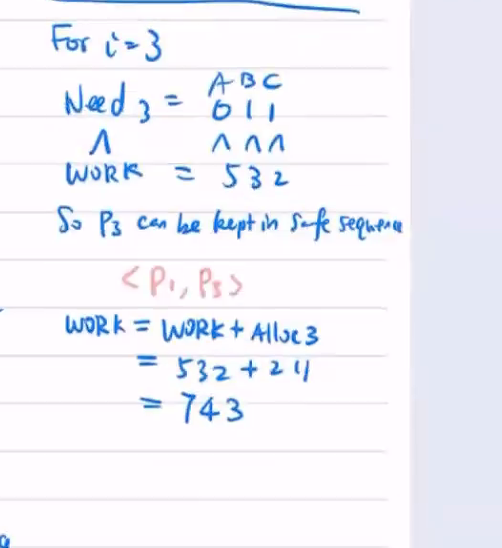 For i=3
A B C
Need 3 = 0 1 1
∧ ∧ ∧ ∧
WORK = 5 3 2
So P3 can be kept in safe sequence
< P1, P3 >
WORK = WORK + Alloc 3
= 532 + 211
= 743